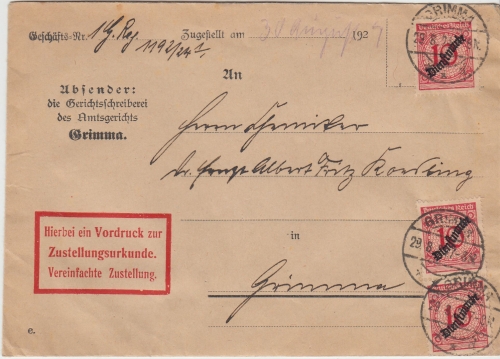 Geschäfts-Nr. 1 G. Reg. 1192/24 Zugestellt am 30 August 1924
An
Absender:
die Gerichtsschreiberei
des Amtsgerichts
Grimma.
Herrn Chemiker
Dr. Ernst Albert Fritz Koesling
in
Grimma
Hierbei ein Vordruck zur
Zustellungsurkunde.
Vereinfachte Zustellung.
e.
GRIMMA
Deutsches Reich
10
Dienstmarke
GRIMMA
Deutsches Reich
10
Dienstmarke
GRIMMA
10
Dienstmarke